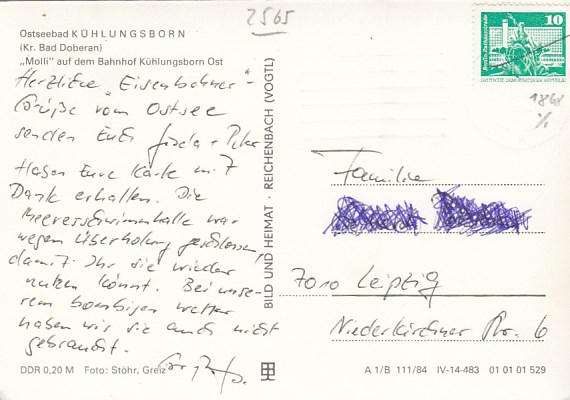 2565
Ostseebad KÜHLUNGSBORN
(Kr. Bad Doberan)
„Molli" auf dem Bahnhof Kühlungsborn Ost
Herzliche „Eisenbahner"-
Grüße vom Ostsee
senden Euch Gisela + Peter
Haben Eure Karte mit
Dank erhalten. Die
Meeresschwimmhalle war
wegen Überholung geschlossen,
damit Ihr sie wieder
nutzen könnt. Bei unse-
rem bombigen Wetter
haben wir sie auch nicht
gebraucht.
DDR 0,20 M Foto: Stöhr, Greiz
BILD UND HEIMAT · REICHENBACH (VOGTL)
10
1868
Familie
7010 Leipzig
Niederkirchner Str. 6
A 1/B 111/84 IV-14-483 01 01 01 529